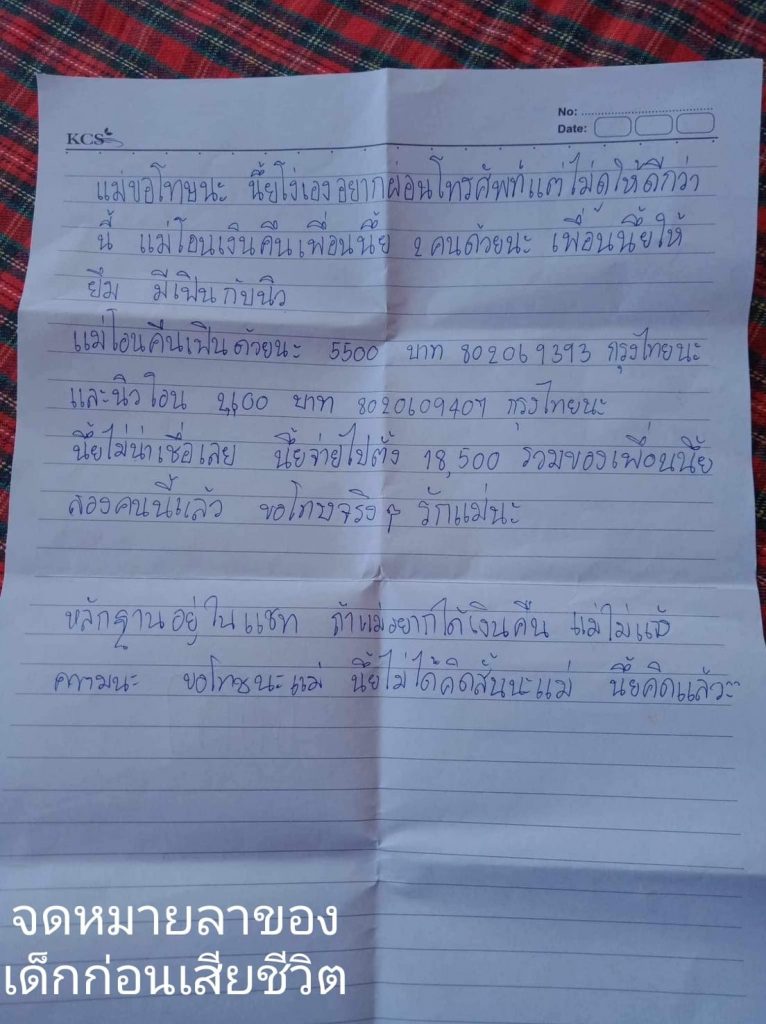 KCS
No:
Date:
แม่ขอโทษนะ นี้ยโง่เองอยากผ่อนโทรศัพท์แต่ไม่ดูให้ดีกว่า
นี้ แม่โอนเงินคืนเพื่อนนี้ย 2 คนด้วยนะ เพื่อนนี้ยให้
ยืม มีเฟินกับนิว
แม่โอนคืนเฟินด้วยนะ 5500 บาท 802069393 กรุงไทยนะ
และนิวโอน บาท 8020609407 กรุงไทยนะ
นี้ยไม่น่าเชื่อเลย นี้ยจ่ายไปตั้ง 18,500 รวมของเพื่อนนี้ย
สองคนนี้แล้ว ขอโทษจริงๆ รักแม่นะ
หลักฐานอยู่ในแชท ถ้าแม่อยากได้เงินคืน แม่ไปแจ้ง
ความนะ ขอโทษนะแม่ นี้ยไม่ได้คิดสั้นนะแม่ นี้ยคิดแล้ว
จดหมายลาของ
เด็กก่อนเสียชีวิต